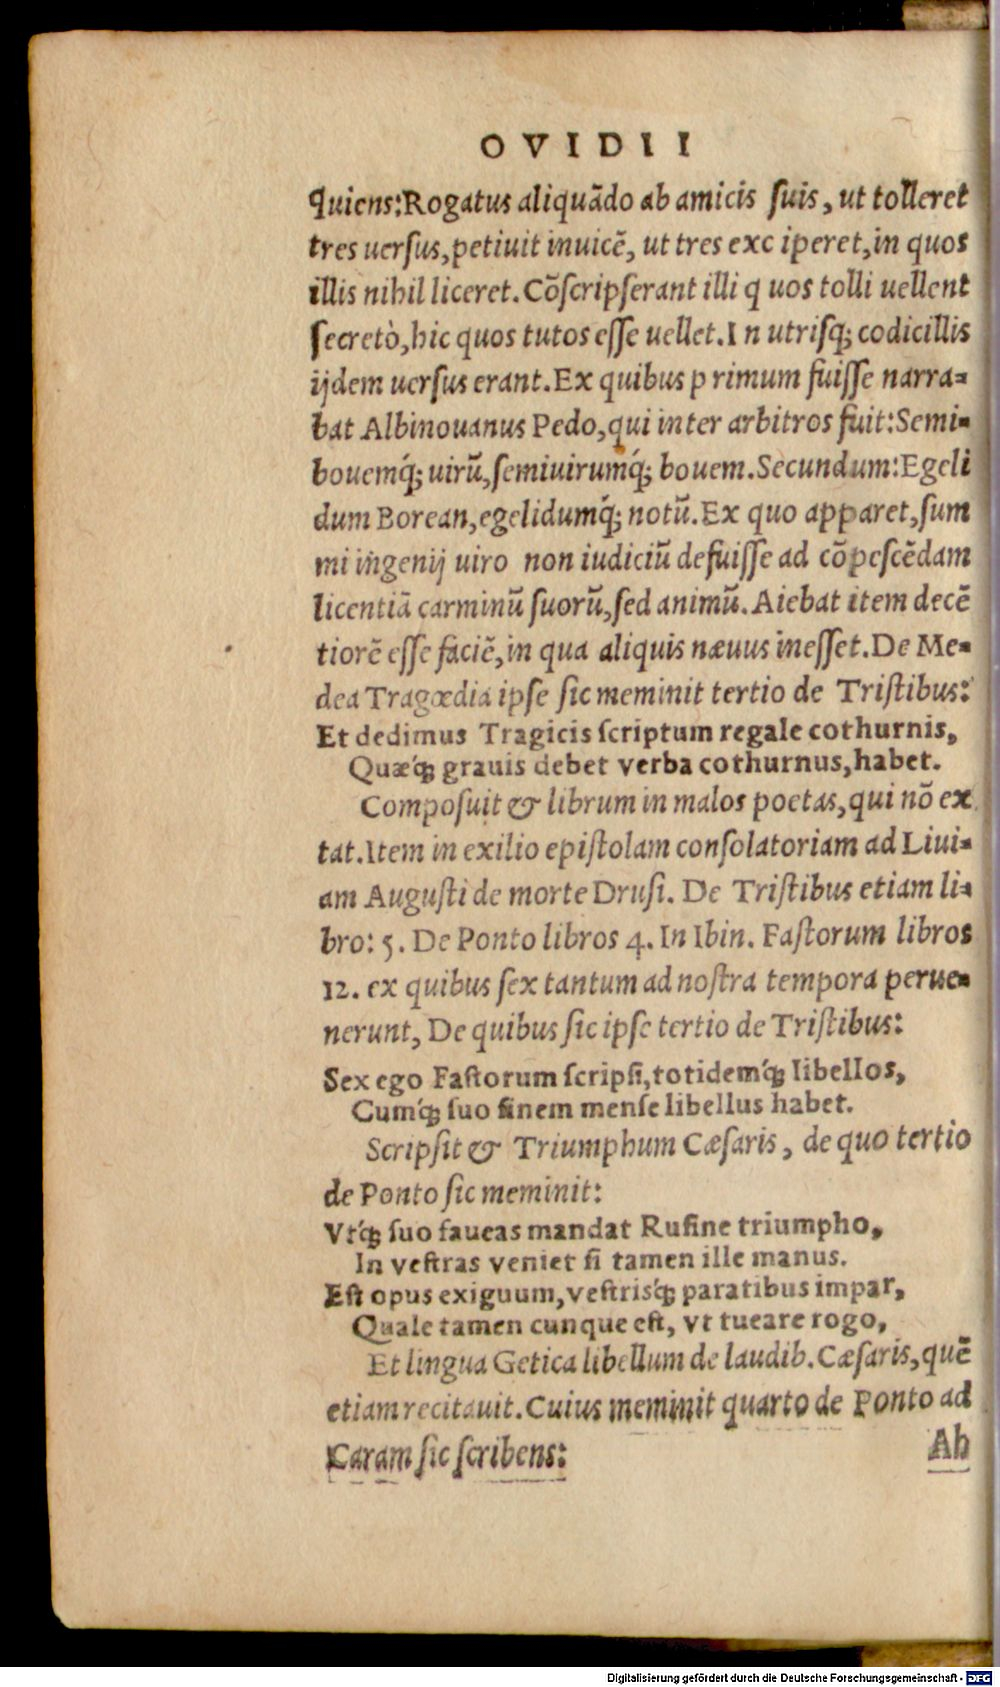 OVIDII
quiens:Rogatus aliquãdo ab amicis ſuis, ut tolleret
tres uerſus,petiuit inuicē, ut tres exc iperet,in quos
illis nihil liceret.Cõſcripſerant illi q uos tolli uellent
ſecretò,hic quos tutos eſſe uellet.I n utriſq; codicillis
ijdem uerſus erant.Ex quibus p rimum fuiſſe narra-
bat Albinouanus Pedo,qui inter arbitros fuit:Semi-
bouemq́; uirũ,ſemiuirumq́; bouem.Secundum:Egeli
dum Borean,egelidumq́; notũ.Ex quo apparet,ſum
mi ingenij uiro non iudiciũ defuiſſe ad cõpeſcēdam
licentiã carminũ ſuorũ,ſed animũ.Aiebat item decē
tiorē eſſe faciē,in qua aliquis næuus ineſſet.De Me-
dea Tragœdia ipſe ſic meminit tertio de Triſtibus:
Et dedimus Tragicis ſcriptum regale cothurnis,
Quæq́; grauis debet verba cothurnus,habet.
Compoſuit & librum in malos poetas,qui nõ ex
tat.Item in exilio epiſtolam conſolatoriam ad Liui-
am Auguſti de morte Druſi. De Triſtibus etiam li-
bro: 5. De Ponto libros 4. In Ibin. Faſtorum libros
12. ex quibus ſex tantum ad noſtra tempora perue-
nerunt, De quibus ſic ipſe tertio de Triſtibus:
Sex ego Faſtorum ſcripſi,totidemq́; libellos,
Cumq́; ſuo finem menſe libellus habet.
Scripſit & Triumphum Cæſaris, de quo tertio
de Ponto ſic meminit:
Vtq́; ſuo faueas mandat Rufine triumpho,
In veſtras veniet ſi tamen ille manus.
Eſt opus exiguum,veſtrisq́; paratibus impar,
Quale tamen cunque eſt, vt tueare rogo,
Et lingua Getica libellum de laudib. Cæſaris,quē
etiam recitauit. Cuius meminit quarto de Ponto ad
Caram ſic ſcribens:
Ab
Digitalisierung gefördert durch die Deutsche Forschungsgemeinschaft - DFG